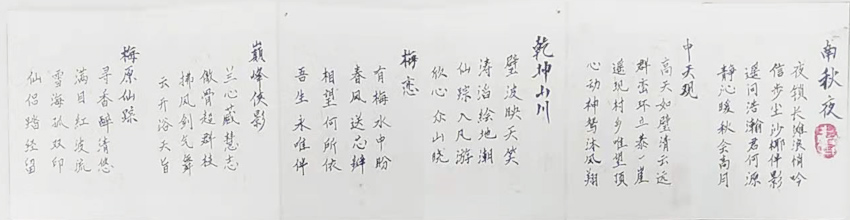 南秋夜
夜锁长滩浪悄吟
信步尘沙椰伴影
遥问浩瀚君何源
静沁暖秋会高月
中天观
高天如璧清云远
群峦环立恭一崖
遥观村乡唯望顶
心动神驽沐风翔
乾坤山川
璧波映天笑
涛治绘地潮
仙踪入凡游
欣心众山晓
梅恋
有梅水中盼
春风送恋辫
相望何所依
吾生永唯伴
巅峰侠影
兰心蕙慧志
傲骨超群枝
拂风剑气舞
云开浴天旨
梅原仙踪
寻香醉清悠
满目红波流
雪海孤双印
仙侣踏经留